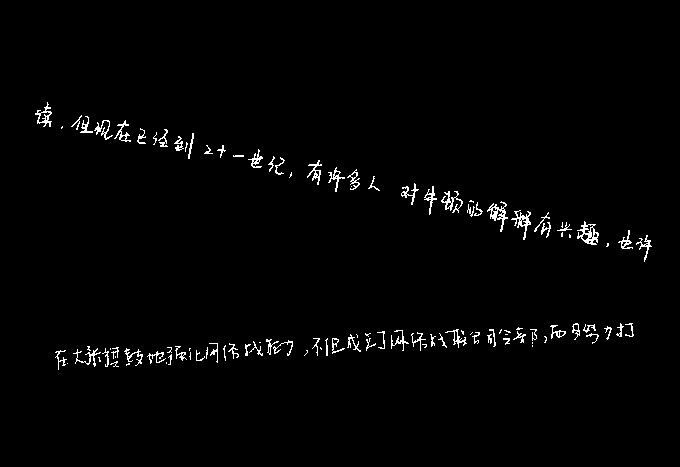 读，但现在已经到二十一世纪，有许多人 对牛顿的解释有兴趣，也许
在大张旗鼓地强化网络战能力，不但成立了网络战联合司令部，而且努力打